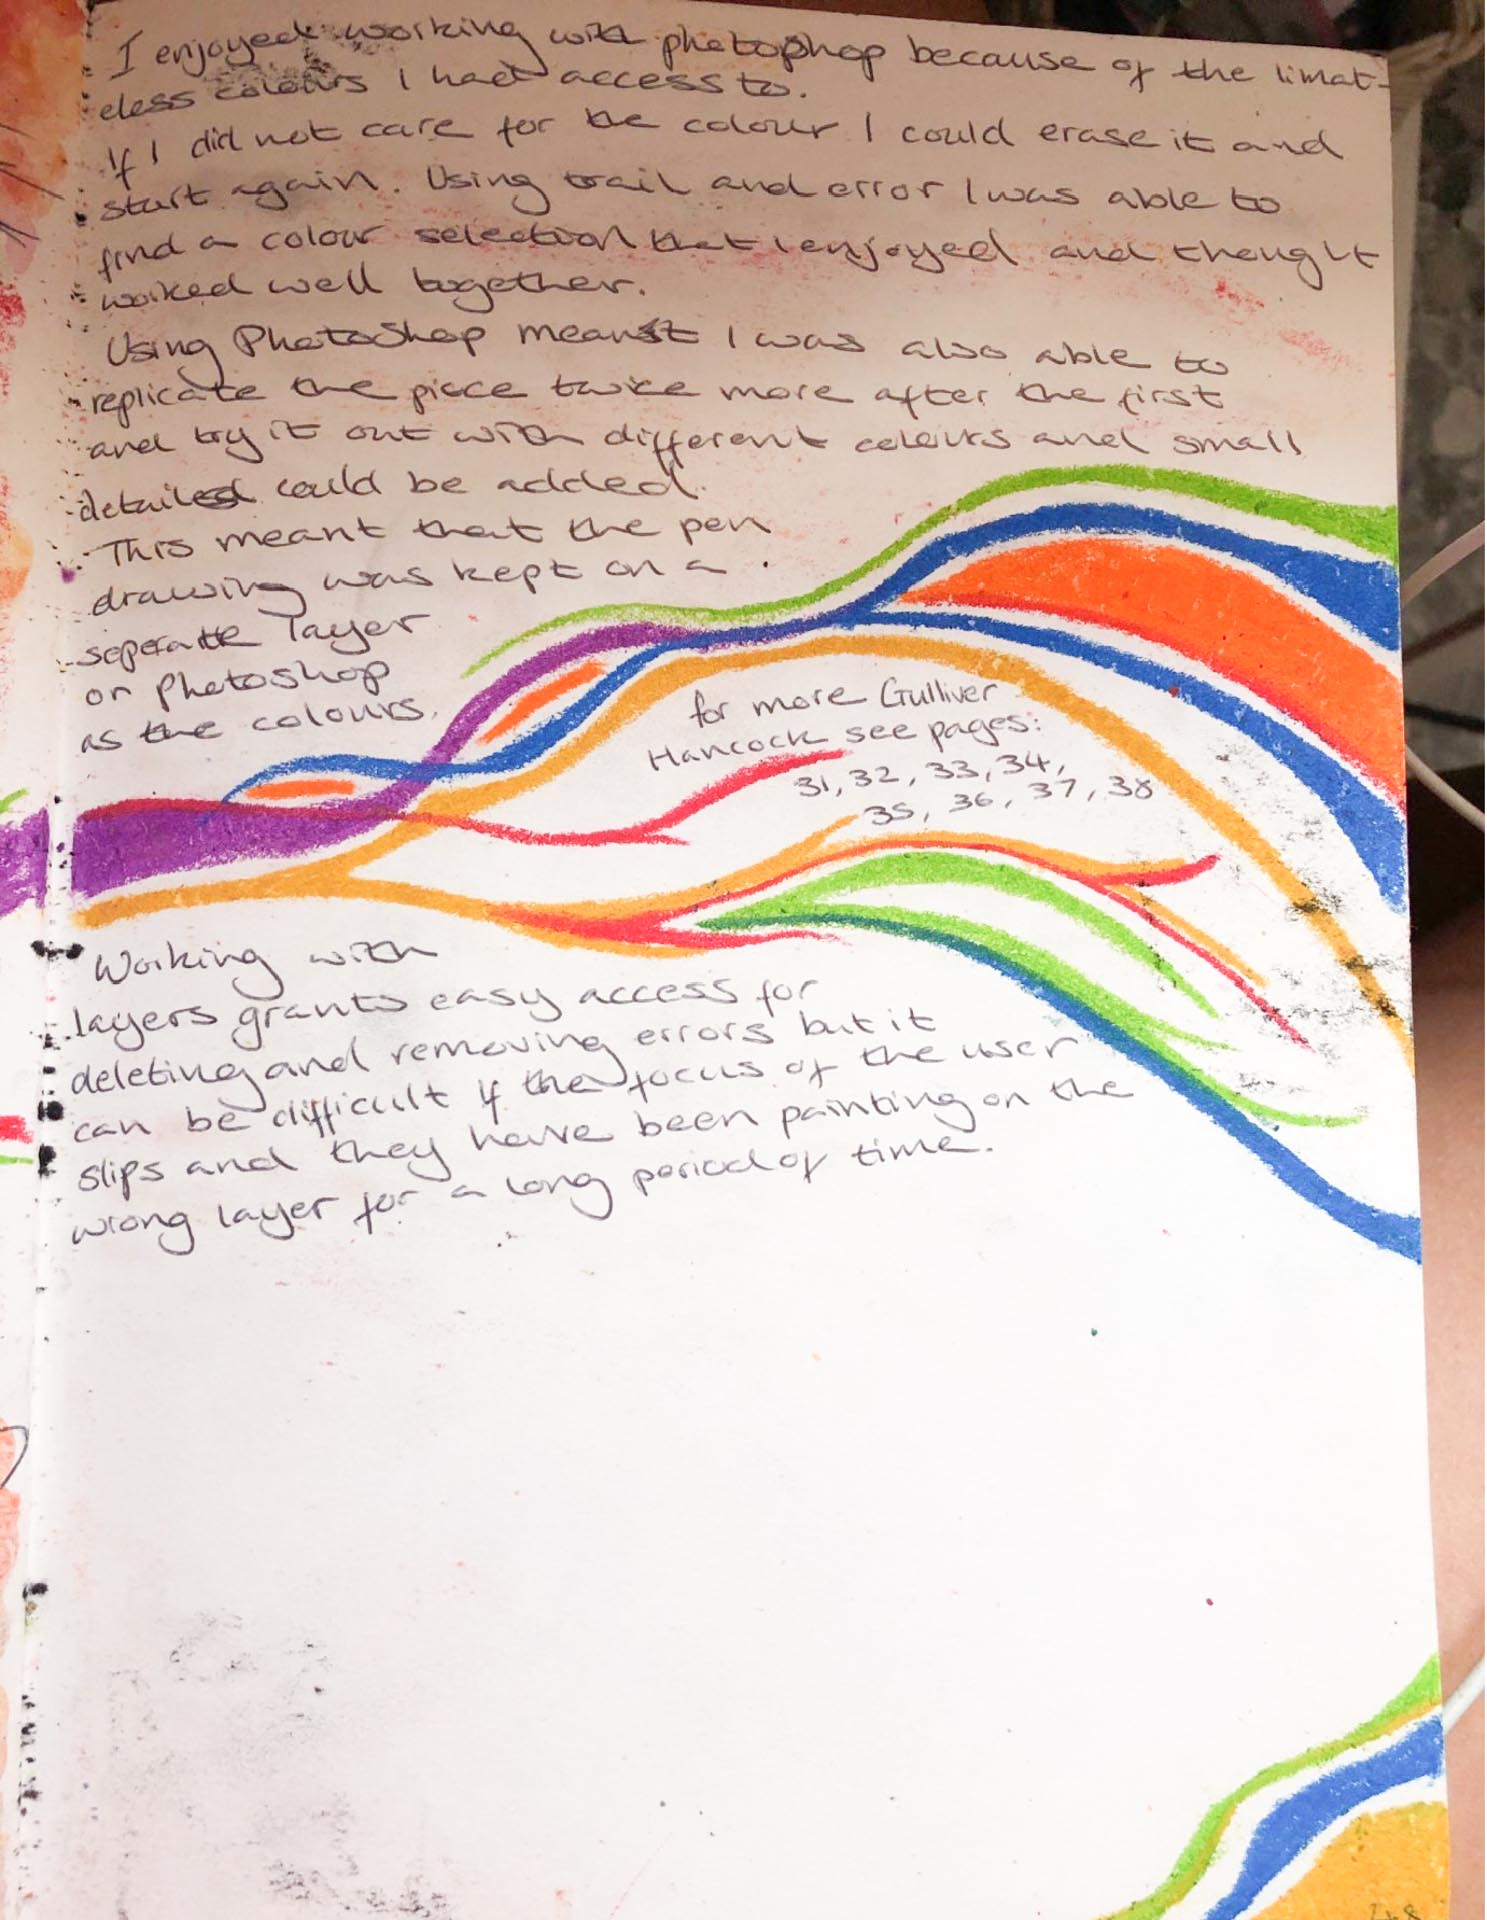 I enjoyed working with photoshop because of the limat-
eless colours I had access to.
If I did not care for the colour I could erase it and
start again. Using trail and error I was able to
find a colour selection that I enjoyed and thought
worked well together.
Using Photoshop meant I was also able to
replicate the piece twice more after the first
and try it out with different colours and small
detailed could be added.
This meant that the pen
drawing was kept on a
seperate layer
on photoshop
as the colours.
for more Gulliver
Hancock see pages:
31, 32, 33, 34,
35, 36, 37, 38
Working with
layers grants easy access for
deleting and removing errors but it
can be difficult if the focus of the user
slips and they have been painting on the
wrong layer for a long period of time.